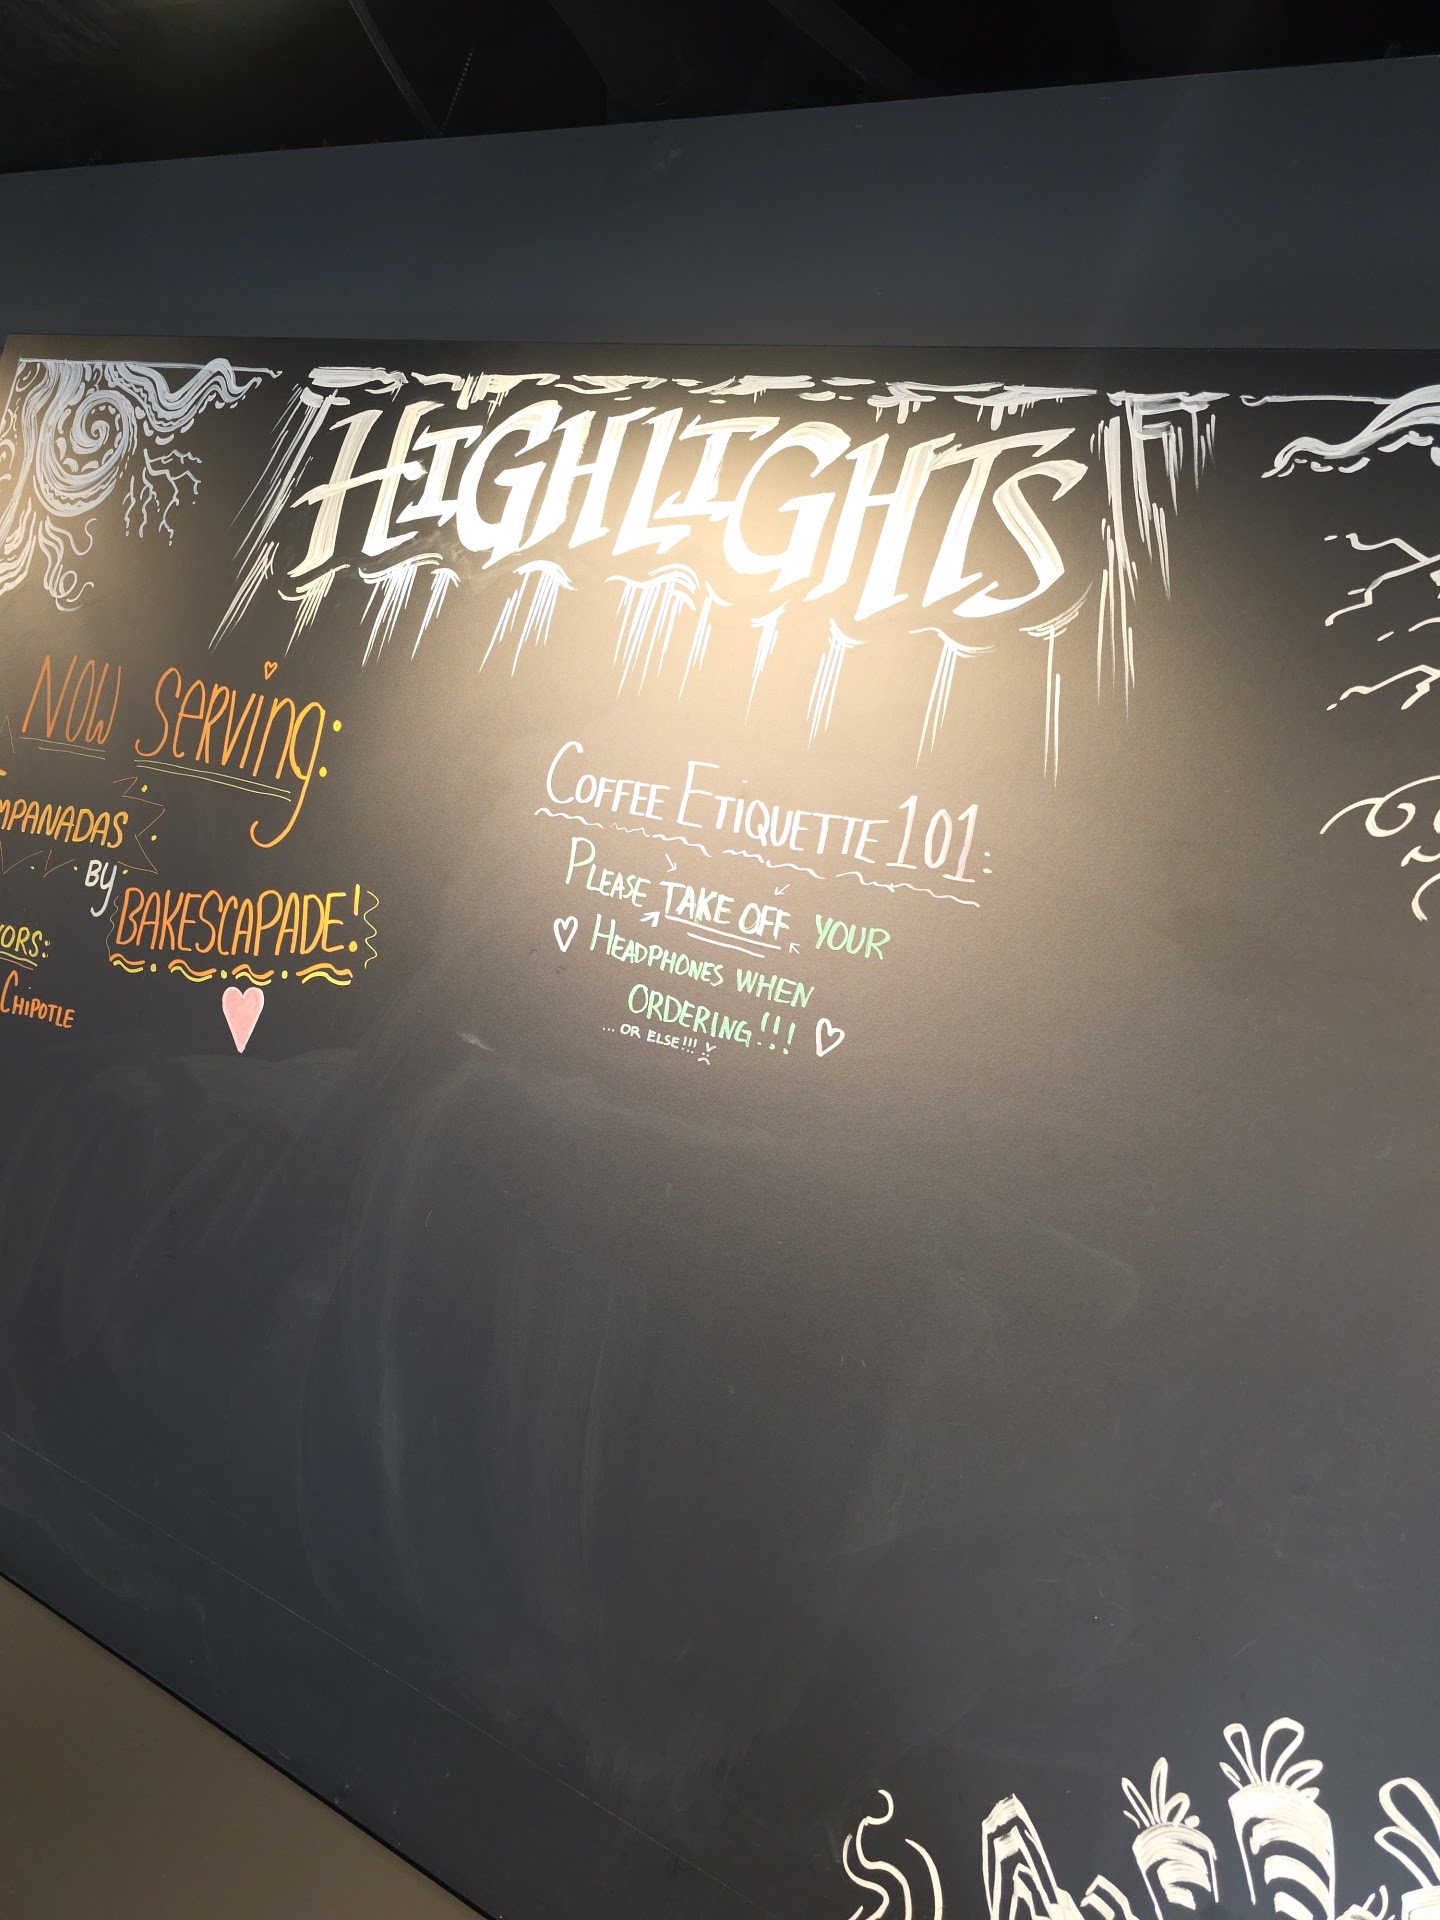 HIGHLIGHTS
NOW SERVING:
MPANADAS
BY
BAKESCAPADE!
ORS:
CHIPOTLE
COFFEE ETIQUETTE 101:
PLEASE TAKE OFF YOUR
HEADPHONES WHEN
ORDERING!!!
... OR ELSE!!!